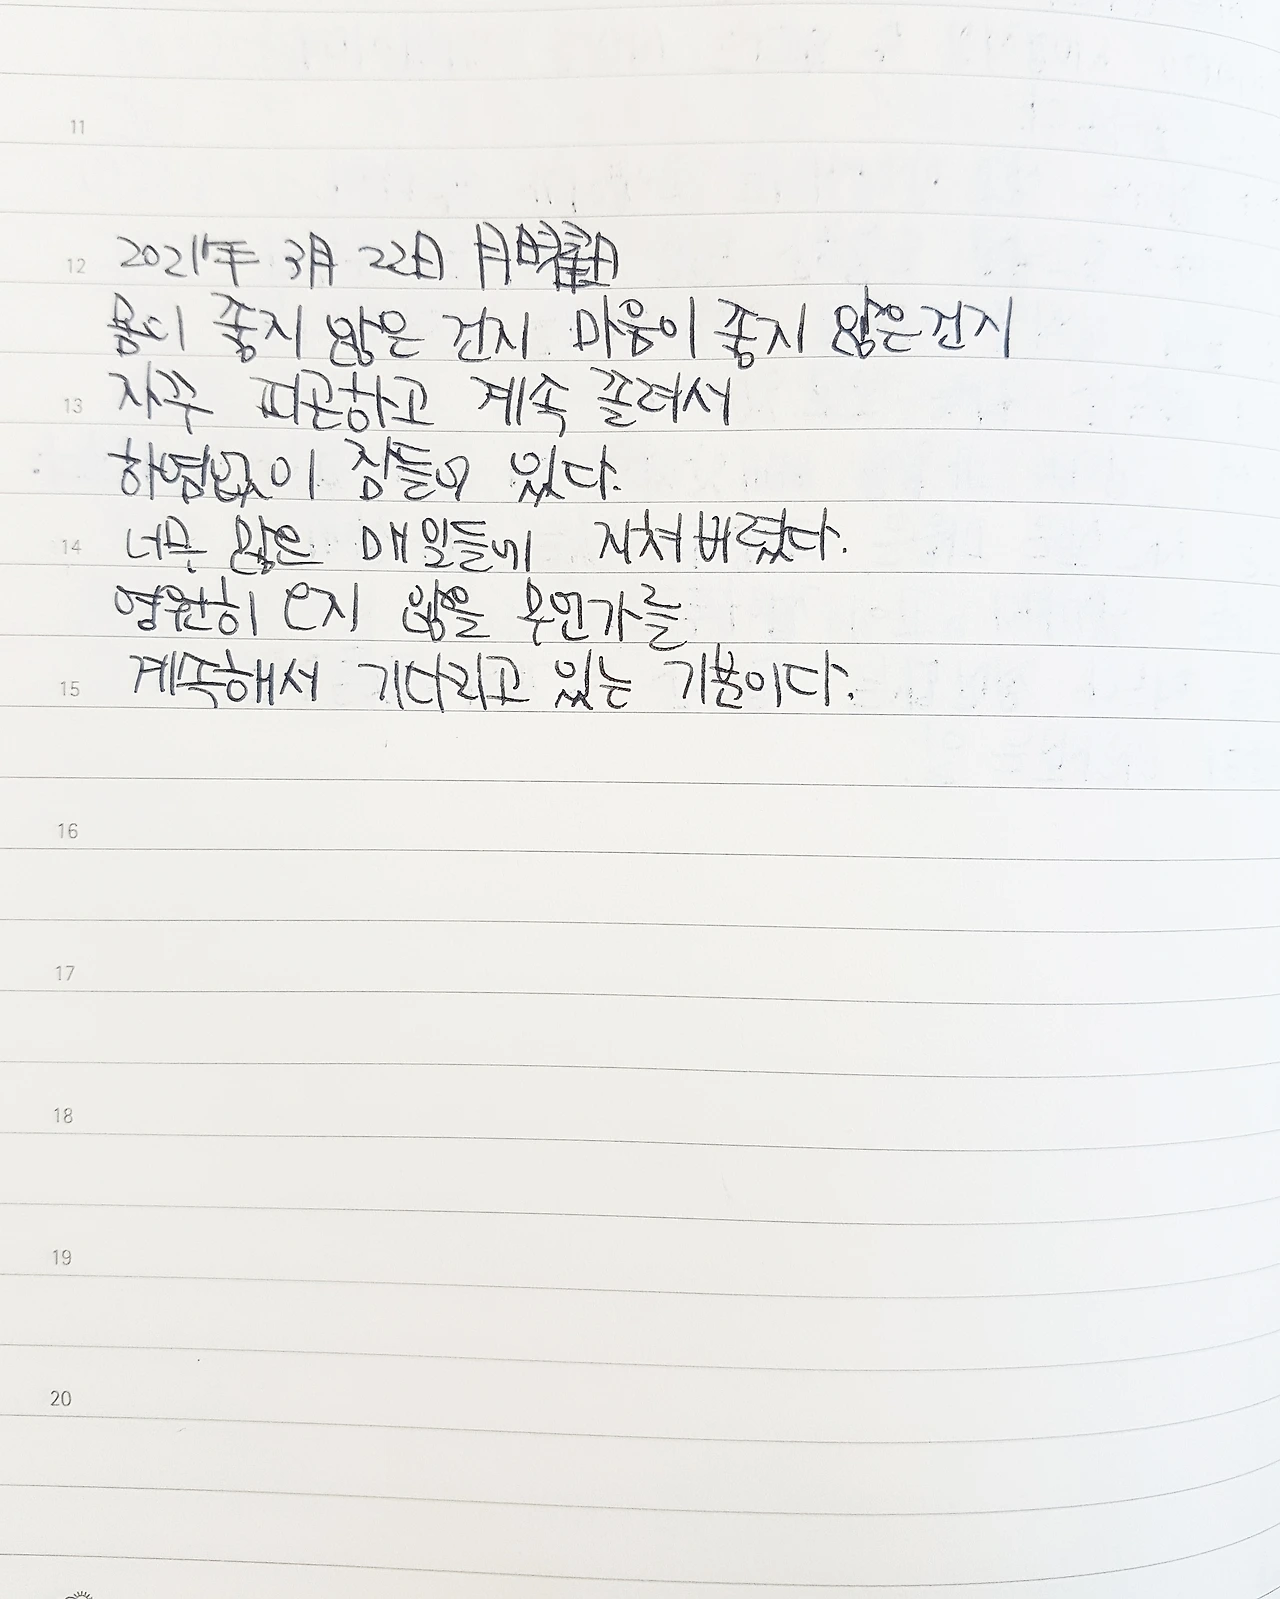 11
12 2021年 3月 22日 月曜日
몸이 좋지 않은 건지 마음이 좋지 않은건지
13 자꾸 피곤하고 계속 졸려서
하염없이 잠들어 있다.
14 너무 많은 매일들에 지쳐버렸다.
영원히 오지 않을 무언가를
15 계속해서 기다리고 있는 기분이다.
16
17
18
19
20